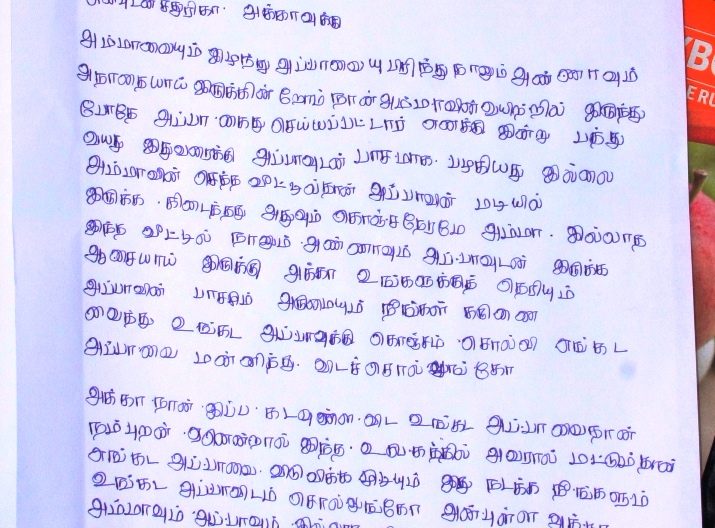 அன்புடன் சதுரிகா அக்காவுக்கு
அம்மாவையும் இழந்து அப்பாவையு பிரிந்து நானும் அண்ணாவும்
அநாதையாய் இருக்கின்றோம் நான் அம்மாவின் வயிற்றில் இருந்து
போதே அப்பா கைது செய்யப்பட்டார் எனக்கு இன்று பத்து
வயது இதுவரைக்கு அப்பாவுடன் பாசமாக பழகியது இல்லை
அம்மாவின் செத்த வீட்டில்தான் அப்பாவின் மடியில்
இருக்க கிடைத்தது அதுவும் கொஞ்சநேரமே அம்மா இல்லாத
இந்த வீட்டில் நானும் அண்ணாவும் அப்பாவுடன் இருக்க
ஆசையாய் இருக்கு அக்கா உங்களுக்குத் தெரியும்
அப்பாவின் பாசமும் அருமையும் நீங்கள் கருணை
வைத்து உங்கட அப்பாவுக்கு கொஞ்சம் சொல்லி எங்கட
அப்பாவை மன்னித்து விடச்சொல்லுங்கோ
அக்கா நான் இப்ப கடவுள விட உங்கட அப்பாவைதான்
நம்புறன் ஏனென்றால் இந்த உலகத்தில் அவரால் மட்டும்தான்
எங்கட அப்பாவை விடுவிக்க முடியும் இது நடக்க நீங்களும்
உங்கட அப்பாவிடம் சொல்லுங்கோ அன்புள்ள அக்கா
அம்மாவும் அப்பாவும்